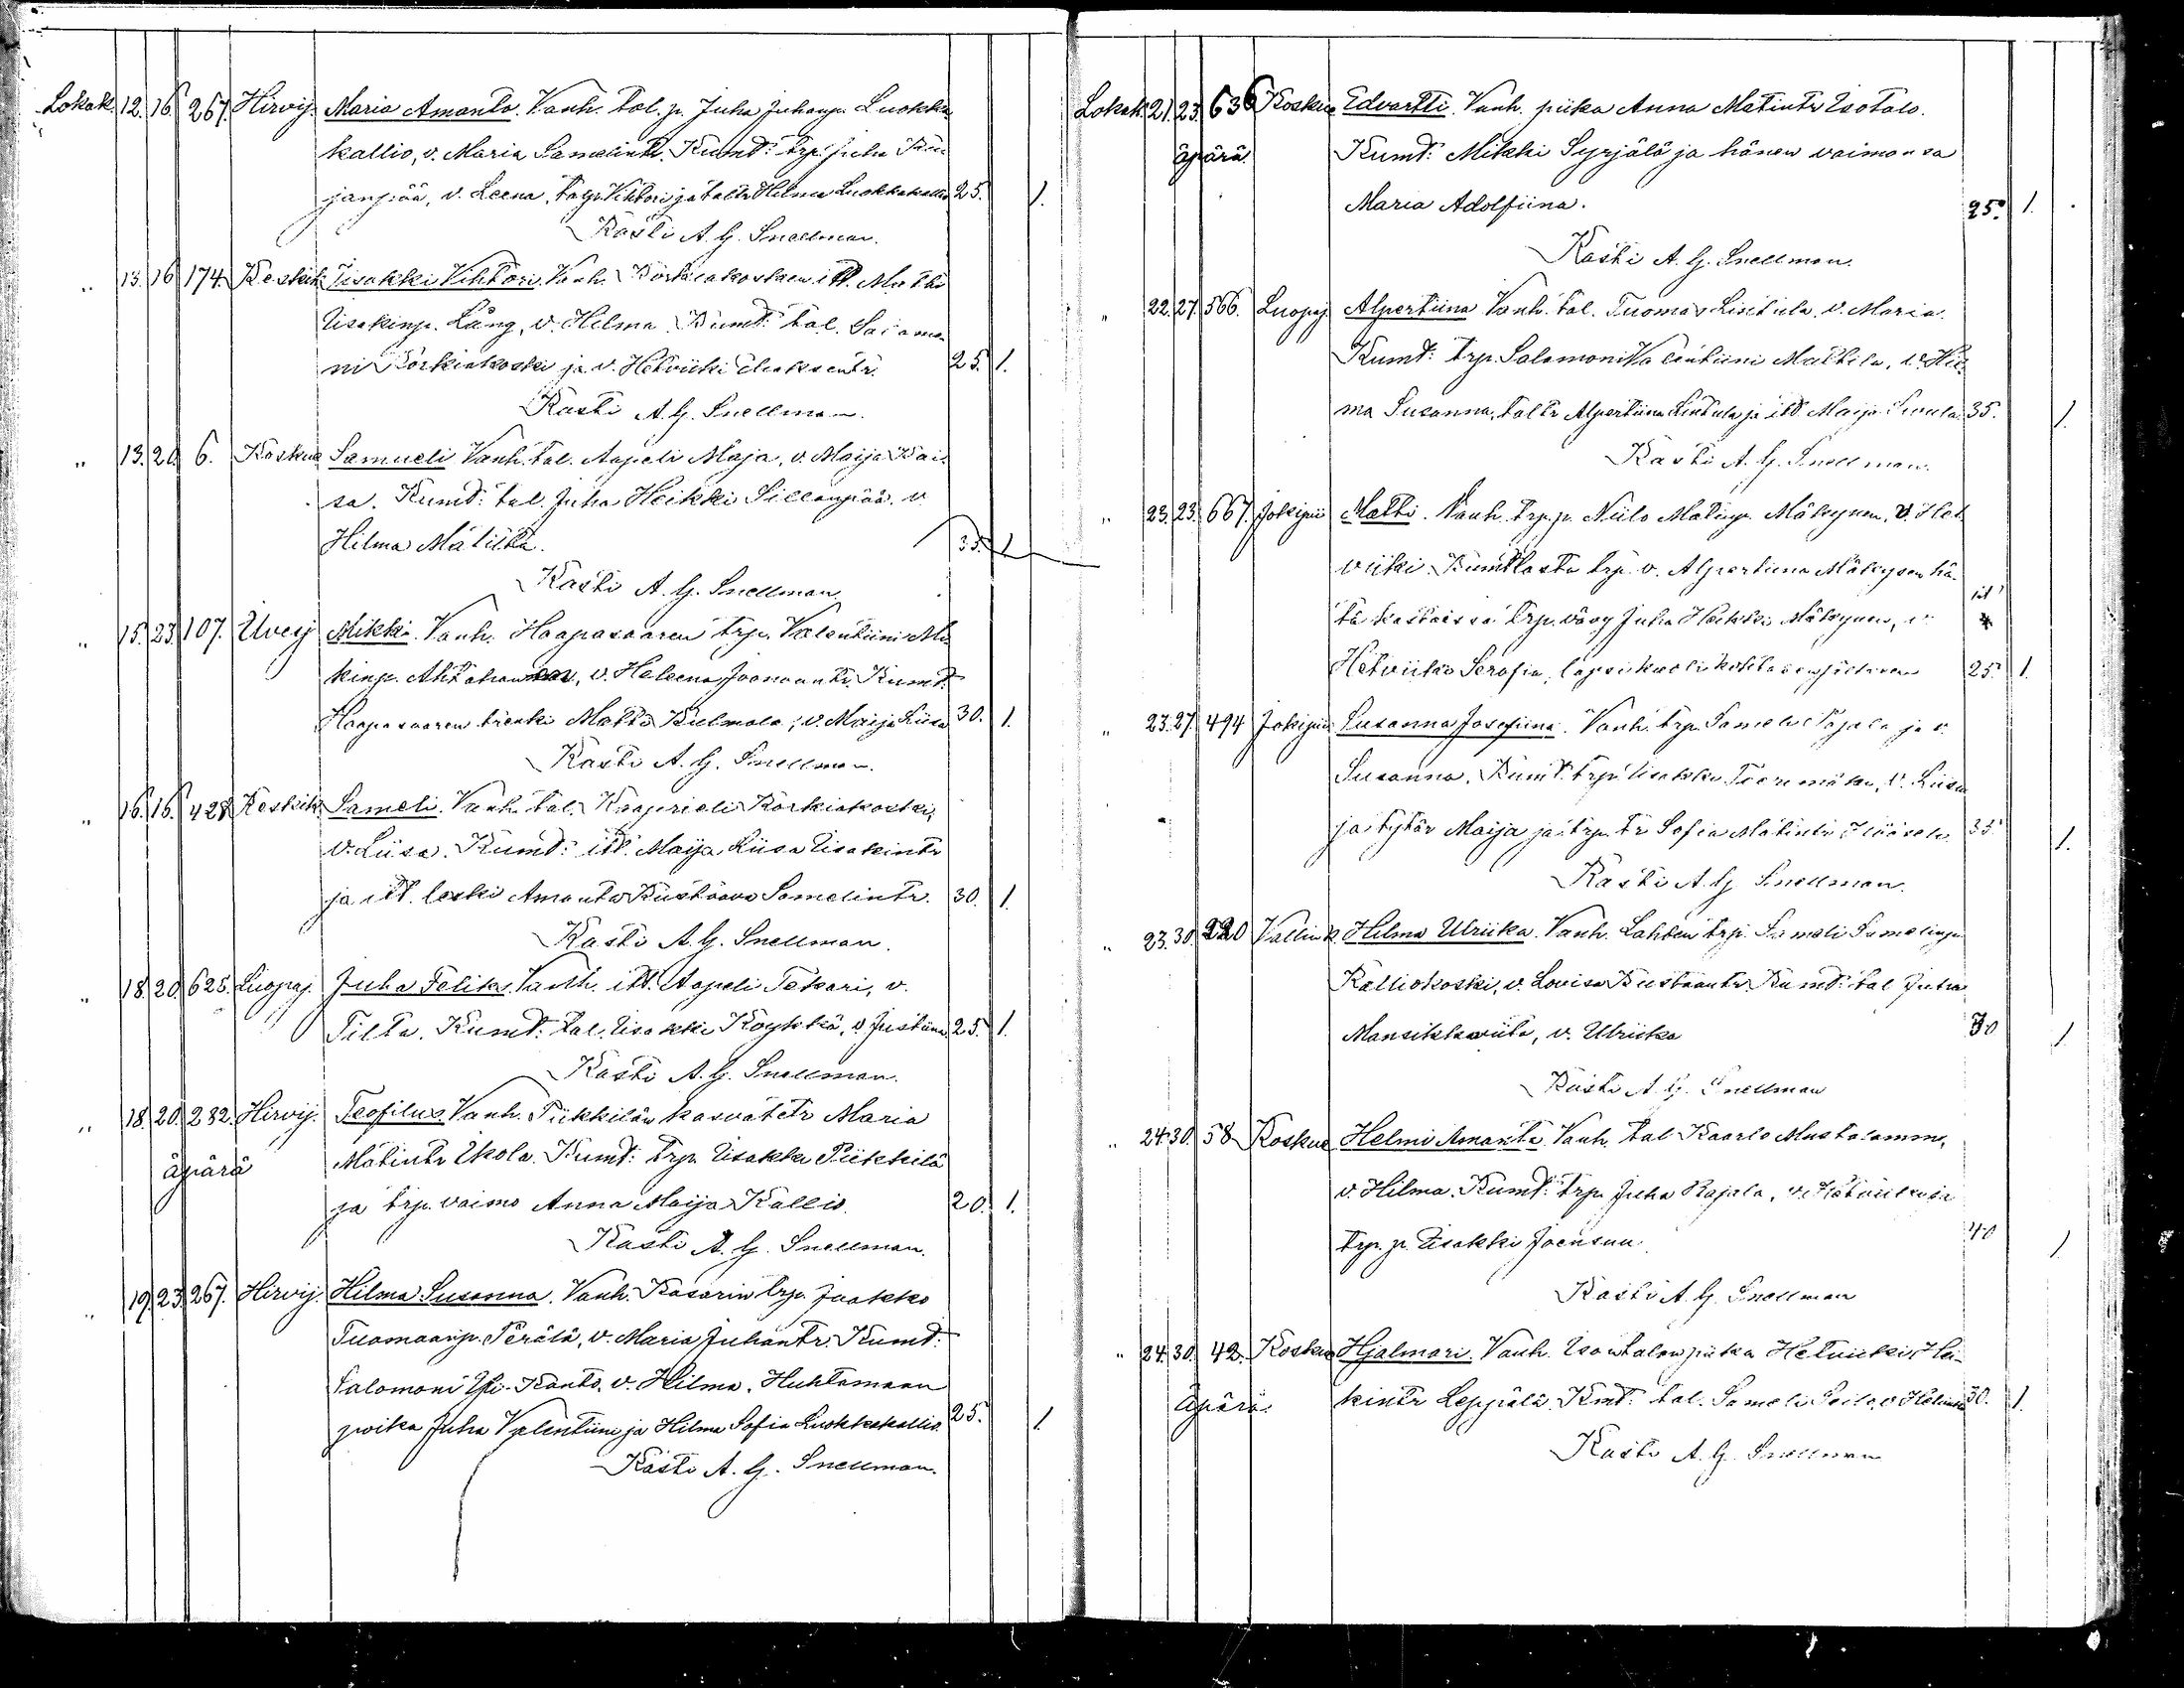 Lokak. 12. 16. 267. Hirvij. Maria Amanta. Vanh. tal. p. Juha Juhanp. Luokka
kallio, v. Maria Samelintr. Kumt: trp. Juha
janpää, v. Leena, talp. Vihtori ja taltr Hilma Luokkakallio 25. 1.
Kasti A. G. Snellman.
" 13. 16 174. Keskik. Iisakki Vihtori. Vanh. Körkiakosken itl. Matti
Iisakinp. Lång, v. Hilma. Kumt: tal. Salamo
ni Körkiakoski ja v. Hetviiki Eliaksentr. 25. 1.
Kasti A. G. Snellman.
" 13. 20 6. Koskue Samueli Vanh. tal. Aapeli Maja, v. Maija Kai-
sa. Kumt: tal. Juha Heikki Sillanpää. v
Hilma Matilta. 35. 1
Kasti A. G. Snellman
" 15. 23. 107. Ilvesj Mikki. Vanh. Haapasaaren trp. Valentiini Mi
kinp. v. Heleena Joonaantr. Kumt:
Haapasaaren trenki Matti Kulmala, v. Maija Liisa 30. 1.
Kasti A. G. Snellman.
" 16. 16. 428 Keskik. Sameli. Vanh. tal. Kaaprieli Körkiakoski,
v. Liisa. Kumt: itl. Maija Liisa Iisakintr
ja itl. leski Amanta Kustaava Samelintr. 30. 1.
Kasti A. G. Snellman.
" 18. 20. 625. Luopaj. Juha Feliks. Vanh. itl. Aapeli Tekari, v.
Tilta. Kumt: tal. Iisakki Köykkä, v. Justiina 25. 1.
Kasti A. G. Snellman.
" 18. 20. 232. Hirvij. Teofilus. Vanh. Piikkilän kasvatetr Maria
äpärä Matintr Ikola. Kumt: trp. Iisakki Piikkilä
ja trp. vaimo Anna Maija Kallio. 20. 1.
Kasti A. G. Snellman.
" 19. 23. 267. Hirvij. Hilma Susanna. Vanh. Kasarin trp. Jaakko
Tuomaanp. Perälä, v. Maria Juhantr. Kumt:
Salomoni Yli-Kanto, v. Hilma. Huhtamaan
poika Juha Valentiini ja Hilma Sofia Luokkakallio. 25. 1.
Kasti A. G. Snellman.
Lokak. 21. 23. 636 Koskue Edvartti. Vanh. piika Anna Matintr Isotalo.
äpärä. Kumt: Mikki Syrjälä ja hänen vaimonsa
Maria Adolfiina. 25. 1.
Kasti A. G. Snellman.
" 22. 27. 566. Luopaj Alpertiina Vanh. tal. Tuomas Lintula, v. Maria.
Kumt: trp. Salomoni Valentiini Mattila, v. Hil-
ma Susanna, taltr Alpertiina Lintula ja itl Maija 35. 1.
Kasti A. G. Snellman.
" 23. 23. 667. Jokipii Matti. Vanh. trp. p. Niilo Matinp. Mäkynen, v. Het
viiki. Kumt trp. v. Alpertiina Mäkysen hä-
tä kastaissa. trp. Juha Heikki Mäkynen, v.
Hetviika Serafia, lapsi kuoli 25. 1.
" 23. 27. 494 Jokipii Susanna Josefiina. Vanh. trp. Sameli Pajala ja v.
Susanna. Kumt. trp. Iisakki v. Liisa
ja tytär Maija ja trp. tr Sofia Matintr 35. 1.
Kasti A. G. Snellman.
" 23. 30. 220 Vallink. Hilma Ulriika. Vanh. Lahden trp. Sameli Samelinp
Kalliokoski, v. Lovisa Kustaantr. Kumt: tal Juha
Mansikkaviita, v. Ulriika 30 1
Kasti A. G. Snellman
" 24. 30. 58 Koskue Helmi Amanta Vanh. tal Kaarlo Mustalammi,
v. Hilma. Kumt: trp. Juha Rajala, v. Hetviika ja
trp. p. Iisakki Joensuu. 40 1
Kasti A. G. Snellman
" 24. 30. 42. Koskue Hjalmari. Vanh. Isontalon piika Hetviiki Hei-
äpärä. kintr Leppälä. Kmt: tal. Sameli v. 30. 1.
Kasti A. G. Snellman